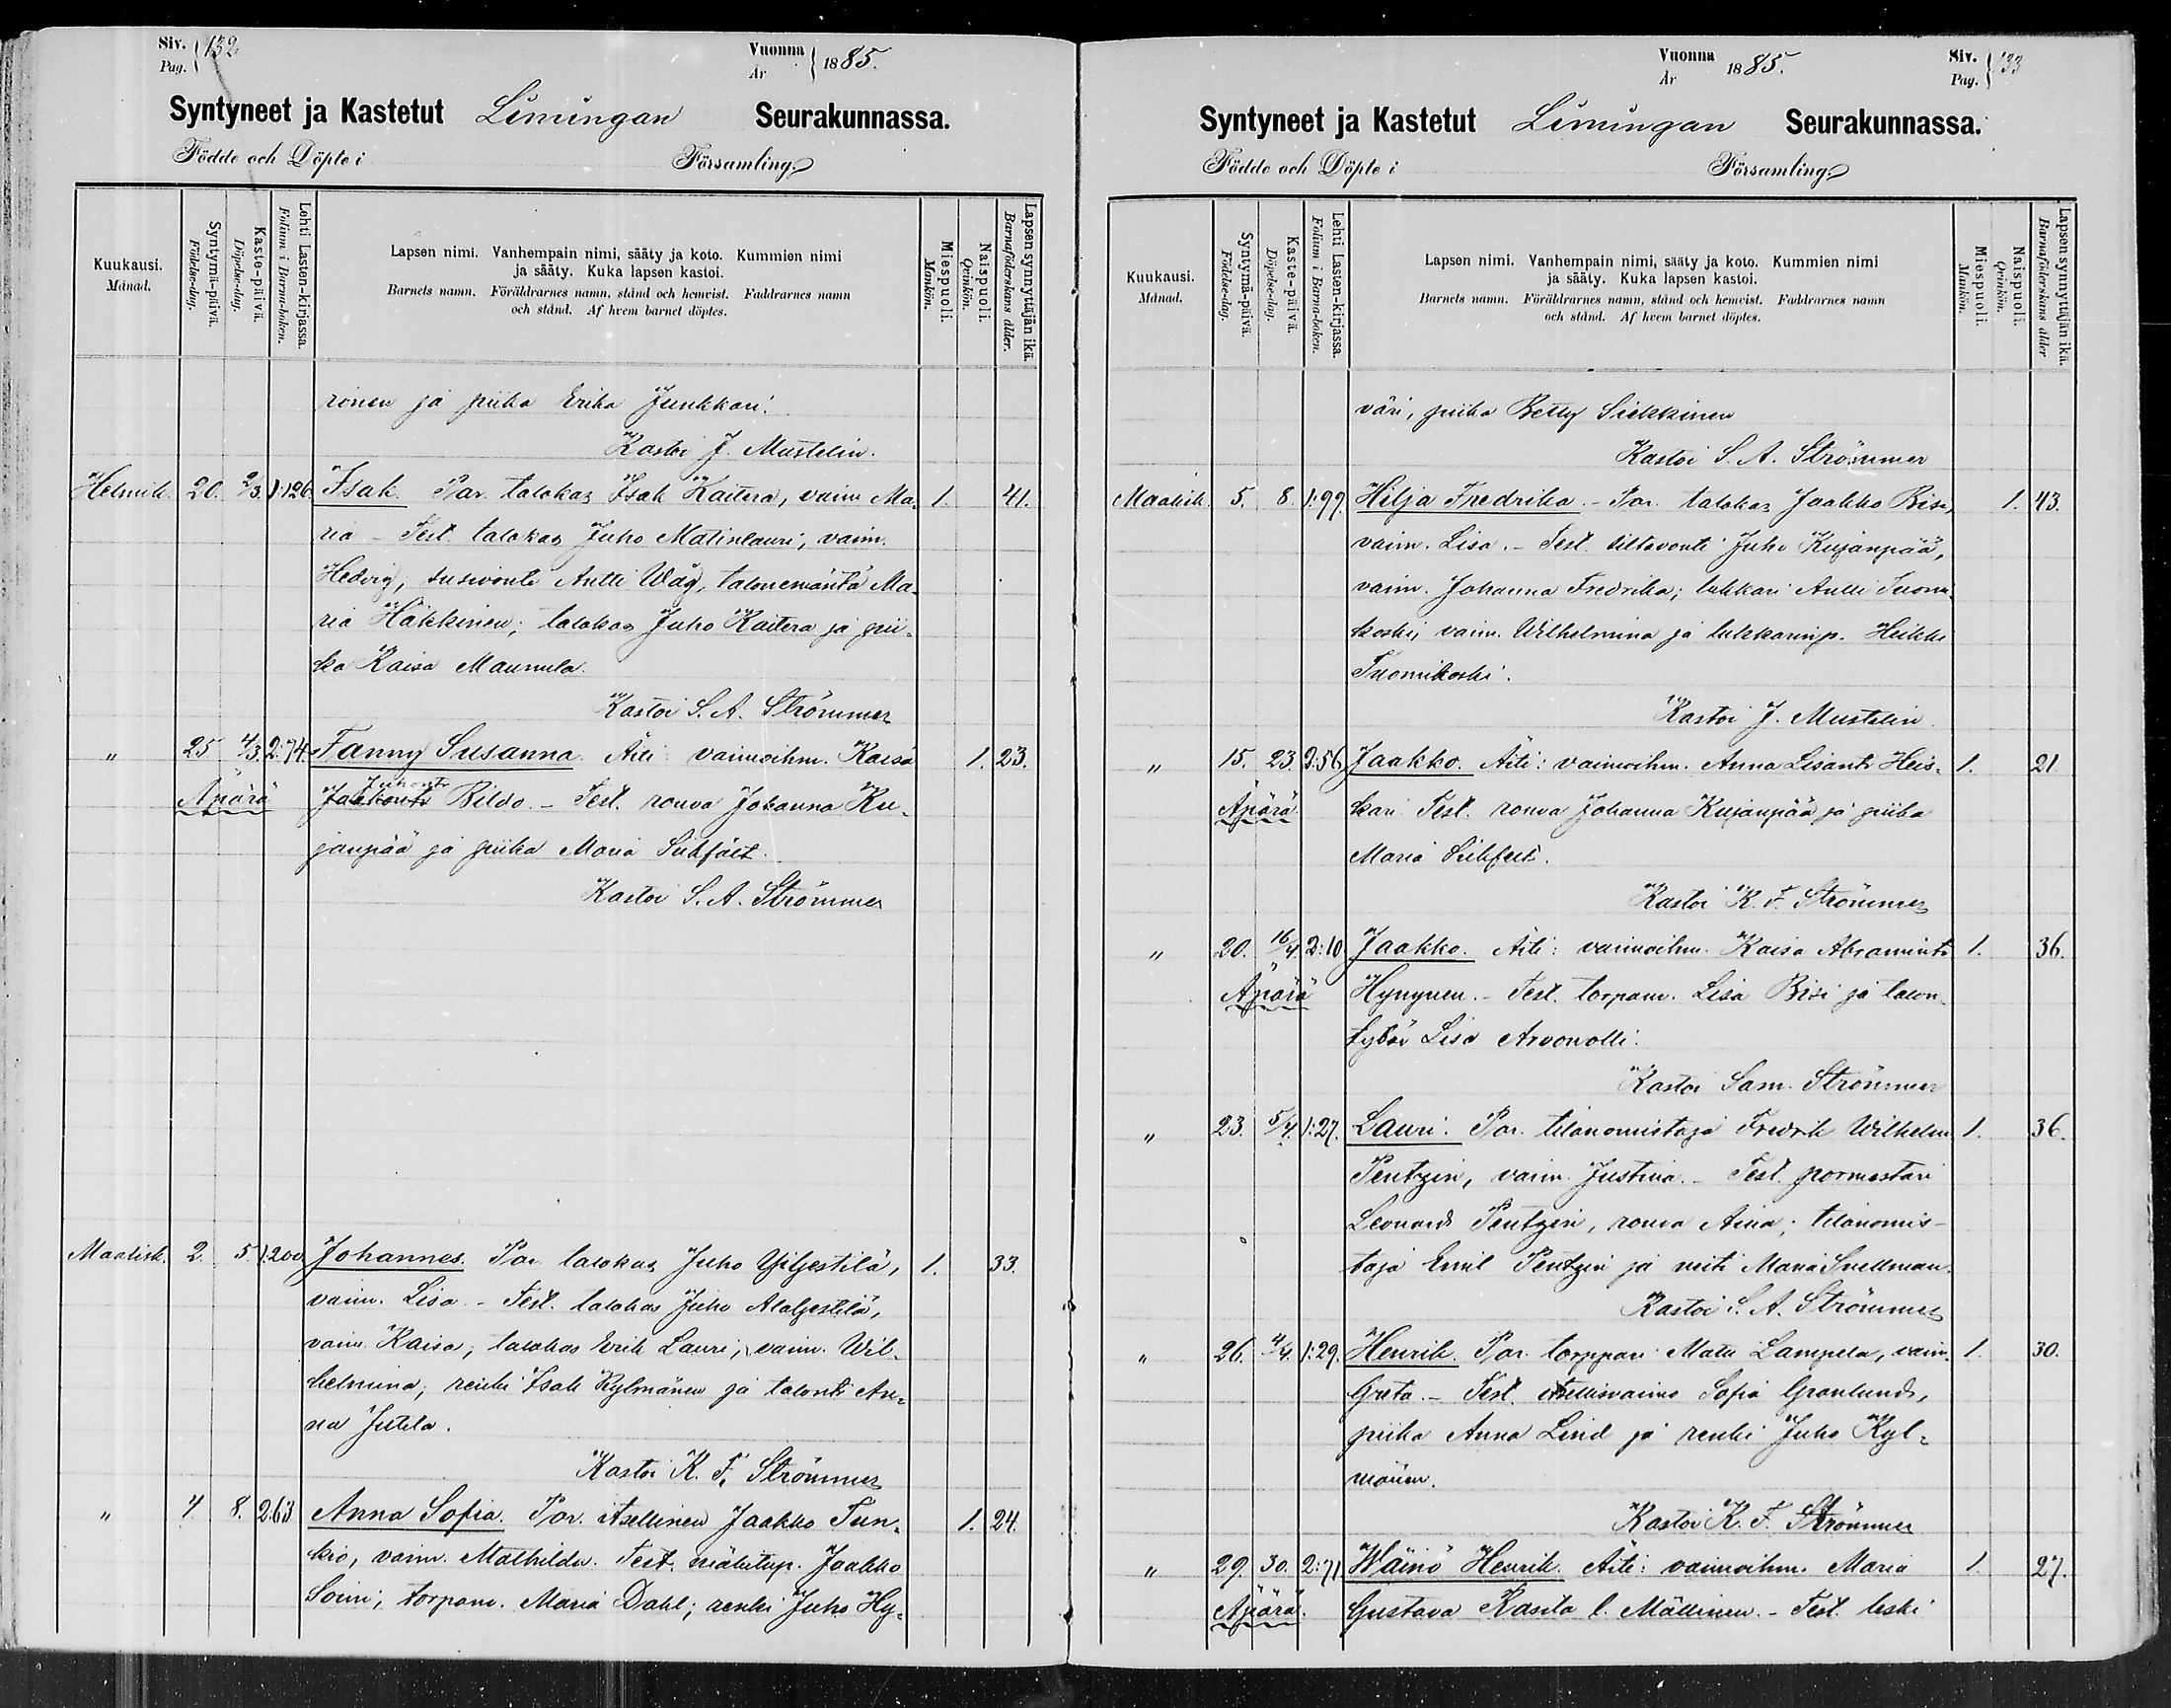 Siv. Pag. 132
Vuonna År 1885.
Syntyneet ja Kastetut Limingan Seurakunnassa.
Födde och Döpte i Församling.
Kuukausi. Månad.
Syntymä-päivä. Födelse-dag.
Kaste-päivä. Döpelse-dag.
Lehti Lasten-kirjassa. Folium i Barna-boken.
Lapsen nimi. Vanhempain nimi, sääty ja koto. Kummien nimi
ja sääty. Kuka lapsen kastoi.
Barnets namn. Föräldrarnes namn, stånd och hemvist. Faddrarnes namn
och stånd. Af hvem barnet döptes.
Miespuoli. Mankön.
Naispuoli. Qvinkön.
Lapsen synnyttäjän ikä. Barnaföderskans ålder.
ronen ja piika Erika Junkkari.
Kastoi J. Mustelin.
Helmik. 20. 2/3. 1:126. Isak. Par. talokas Isak Kaitera, vaim. Ma- 1. 41.
ria - Test. talokas Juho Matinlauri, vaim.
Hedvig, susivouti Antti Wäg, talonemäntä Ma-
ria Häkkinen; talokas Juho Kaitera ja pii-
ka Kaisa Maunula.
Kastoi S. A. Strömmer
" 25 4/3. 2:74. Fanny Susanna. Äiti: vaimoihm. Kaisa 1. 23.
Juhontr
Äpärä Jaakontr Bildo. - Test. rouva Johanna Ku-
janpää ja piika Maria
Kastoi S. A. Strömmer
Maalisk. 2. 5. 1.200. Johannes. Par. talokas Juho Ylijestilä, 1. 33.
vaim. Lisa - Test. talokas Juho Alaljestilä,
vaim. Kaisa; talokas Erik Lauri, vaim. Wil-
helmina; renki Isak Kylmänen ja talontr An-
na Jutila.
Kastoi K. F. Strömmer
" 7 8. 2.63 Anna Sofia. Par. itsellinen Jaakko Tun- 1. 24.
kio, vaim. Mathilda. Test. mäkitup. Jaakko
Soini; torpanv. Maria Dahl; renki Juho Hy-
Vuonna År 1885.
Siv. Pag. 133
Syntyneet ja Kastetut Limingan Seurakunnassa.
Födde och Döpte i Församling
Kuukausi. Månad.
Syntymä-päivä. Födelse-dag.
Kaste-päivä. Döpelse-dag.
Lehti Lasten-kirjassa. Folium i Barna-boken.
Lapsen nimi. Vanhempain nimi, sääty ja koto. Kummien nimi
ja sääty. Kuka lapsen kastoi.
Barnets namn. Föräldrarnes namn, stånd och hemvist. Faddrarnes namn
och stånd. Af hvem barnet döptes.
Miespuoli. Mankön.
Naispuoli. Qvinkön.
Lapsen synnyttäjän ikä. Barnaföderskans ålder
väri, piika Betty Siekkinen
Kastoi S. A. Strömmer
Maalisk. 5. 8. 1:99. Hilja Fredrika. - Par. talokas Jaakko Bisi, 1. 43.
vaim. Lisa. - Test. siltavouti Juho Kujanpää,
vaim. Johanna Fredrika; lukkari Antti Tuomi-
koski, vaim. Wilhelmina ja lukkarinp. Heikki
Tuomikoski.
Kastoi J. Mustelin
" 15. 23. 2:56 Jaakko. Äiti: vaimoihm. Anna Lisantr Heis- 1. 21
Äpärä. kari. Test. rouva Johanna Kujanpää ja piika
Maria
Kastoi K. F. Strömmer
" 20. 16/4. 2:10 Jaakko. Äiti: vaimoihm. Kaisa Abramintr 1. 36.
Äpärä Hyngnen. - Test. torpanv. Lisa Bisi ja talon
tytär Lisa Arvonolli.
Kastoi Sam. Strömmer
" 23. 5/4. 1:27. Lauri. Par. tilanomistaja Fredrik Wilhelm 1. 36.
Pentzin, vaim. Justina. - Test. pormestari
Leonard Pentzin, rouva Aina; tilanomis-
taja Emil Pentzin ja neiti Maria Snellman.
Kastoi S. A. Strömmer
" 26. 4/4. 1:29. Henrik. Par. torppari Matti Lampela, vaim. 1. 30.
Greta. - Test. itsellisvaimo Sofia Granlund,
piika Anna Lind ja renki Juho Kyl-
mänen.
Kastoi K. F. Strömmer
" 29. 30. 2:71 Wäinö Henrik. Äiti: vaimoihm. Maria 1. 27.
Äpärä. Gustava Rasila l. Mällinen. - Test. leski